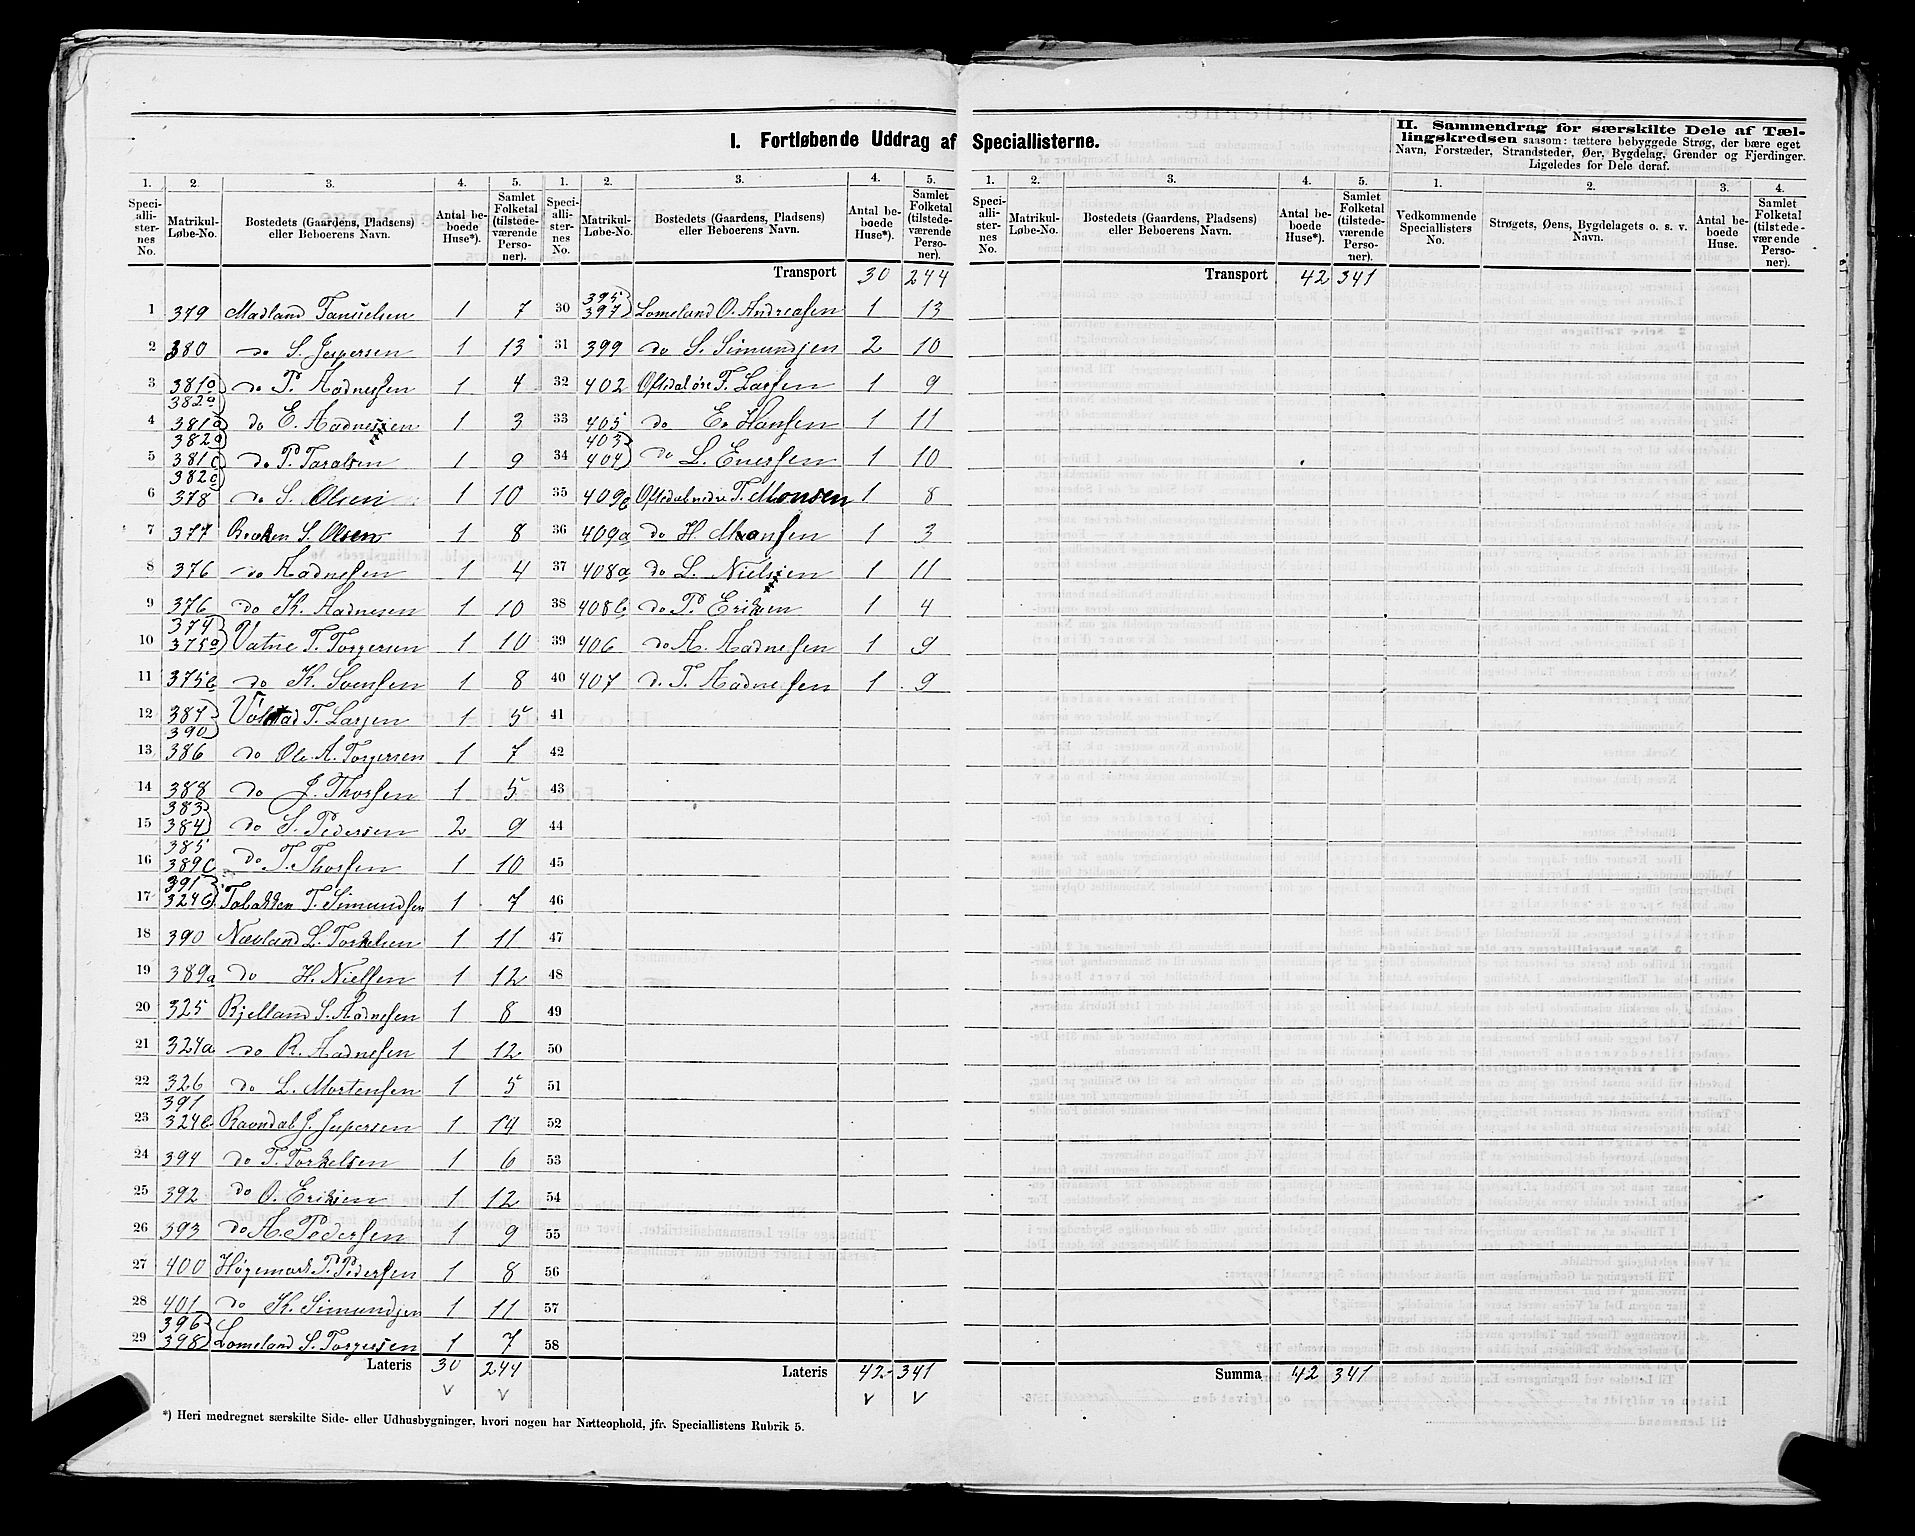 I. Fortløbende Uddrag af Speciallisterne.
II. Sammendrag for særskilte Dele af Tællingskredsen saasom: tættere bebyggede Strøg, der bære eget
Navn, Forstæder, Strandsteder, Øer, Bygdelag, Grender og Fjerdinger.
Ligeledes for Dele deraf.
1. 2. 3. 4. 5. 1. 2. 3. 4. 5.
Speciallisternes No. Matrikul-Løbe-No. Bostedets (Gaardens, Pladsens) eller Beboerens Navn. Antal beboede Huse*). Samlet Folketal (tilstedeværende Personer).
Transport 30 244
1 379 Madland Tanielsen 1 7
2 380 do S. Jespersen 1 13
3 381a 382a do P. Aadnessen 1 4
4 381a 382a do E. Aadnessen 1 3
5 381c 382c do P. Taralsen 1 9
6 378 do S. Olsen 1 10
7 377 Brækken S. Olsen 1 8
8 376 do Aadnessen 1 4
9 376 do K. Aadnesen 1 10
10 374 375a Vatne T. Torgersen 1 10
11 375b do K. Svensen 1 8
12 387 390 Vølstad T. Larsen 1 5
13 386 do Ole A. Torgersen 1 7
14 388 do J. Thorsen 1 5
15 383 384 do S. Pedersen 2 9
16 385 389c do T. Thorsen 1 10
17 391 324b Tobakken T. Simundsen 1 7
18 390 Nævland L. Torkelsen 1 11
19 389a do H. Nielsen 1 12
20 325 Bjelland S. Aadnesen 1 8
21 324a do R. Aadnesen 1 12
22 326 do L. Mortensen 1 5
23 391 324b Ravndal J. Jespersen 1 14
24 394 do T. Torkelsen 1 6
25 392 do O. Eriksen 1 12
26 393 do A. Pedersen 1 9
27 400 Høgemark P. Pedersen 1 8
28 401 do K. Simundsen 1 11
29 396 398 Lomeland S. Torgersen 1 7
Lateris 30 244
30 395 397 Lomeland O. Andreasen 1 13
31 399 do S. Simundsen 2 10
32 402 Oftedal øre T. Larsen 1 9
33 405 do E. Hansen 1 11
34 403 404 do L. Enersen 1 10
35 409b Oftedal nedre T. Monsen 1 8
36 409a do H. Monsen 1 3
37 408a do L. Nielsen 1 11
38 408b do P. Eriksen 1 4
39 406 do A. Aadnesen 1 9
40 407 d. T. Aadnesen 1 9
41
42
43
44
45
46
47
48
49
50
51
52
53
54
55
56
57
58
Lateris 42 341
*) Heri medregnet særskilte Side- eller Udhusbygninger, hvori nogen har Natteophold, jfr. Speciallistens Rubrik 5.
1. 2. 3. 4. 5. 1. 2. 3. 4.
Speciallisternes No. Matrikul-Løbe-No. Bostedets (Gaardens, Pladsens) eller Beboerens Navn. Antal beboede Huse*). Samlet Folketal (tilstedeværende Personer).
Vedkommende Speciallisters No. Strøgets, Øens, Bygdelagets o. s. v. Navn. Antal beboede Huse. Samlet Folketal (tilstedeværende Personer).
Transport 42 341
Summa 42 341